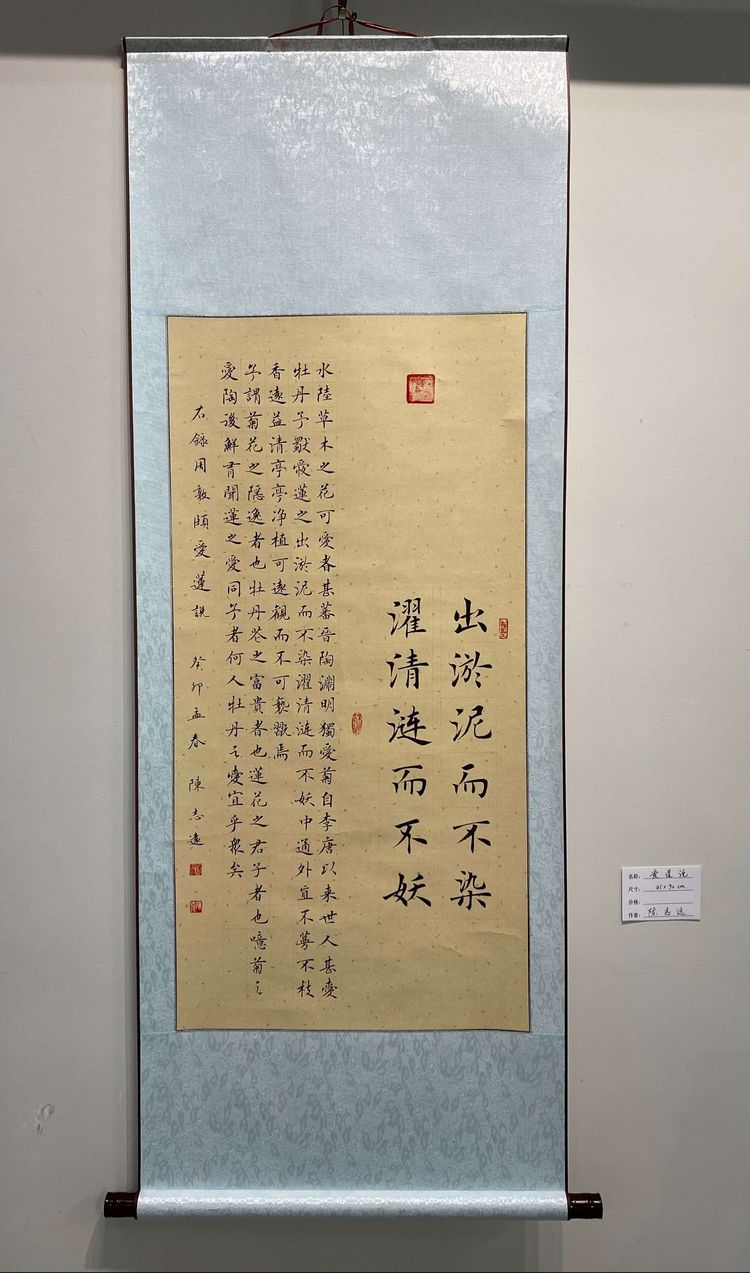 出淤泥而不染
濯清涟而不妖
水陸草木之花可愛者甚蕃晉陶淵明獨愛菊自李唐以来世人甚愛
牡丹予獨愛蓮之出淤泥而不染濯清涟而不妖中通外直不蔓不枝
香遠益清亭亭净植可遠觀而不可褻翫焉
予謂菊花之隱逸者也牡丹花之富貴者也蓮花之君子者也噫菊之
愛陶後鮮有聞蓮之愛同予者何人牡丹之愛宜乎眾矣
右錄周敦頤愛蓮説 癸卯孟春 陳志遠
名称: 爱莲说
尺寸: 45x90cm
价格:
作者: 陈志远